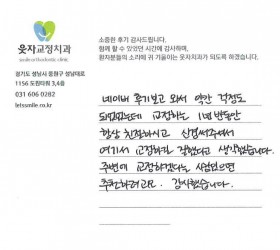 웃자교정치과
smile orthodontic clinic
경기도 성남시 중원구 성남대로
1156 도원타워 3,4층
031 606 0282
letssmile.co.kr
소중한 후기 감사드립니다.
함께 할 수 있었던 시간에 감사하며,
환자분들의 소리에 귀 기울이는 웃자치과가 되도록 하겠습니다.
네이버 후기보고 와서 약간 걱정도
되었었는데 교정하는 1년 반동안
항상 친절하시고 신경써주셔서
여기서 교정하길 잘했다고 생각했습니다.
주변에 교정하겠다는 사람있으면
추천하려고요. 감사했습니다.